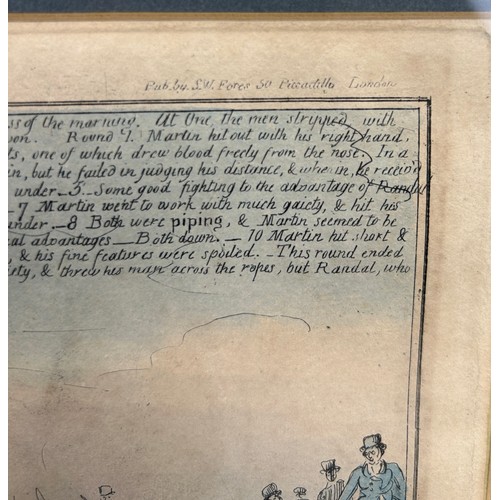 Pub. by S.W. Fores 50 Piccadilly London
ss of the marning. At One, the men stripped with
on. Round 1. Martin hit out with his right hand.
ts, one of which drew blood freely from the nose. In a
in, but he failed in judging his distance, & when in, he receiv'd
under _ 5. Some good fighting to the advantage of Randal
_ 7 Martin went to work with much gaiety, & hit his
under. _ 8 Both were piping, & Martin seemed to be
al advantages _ Both down. _ 10 Martin hit short &
, & his fine features were spoiled. _ This round ended
iety, & threw his man across the ropes, but Randal, who